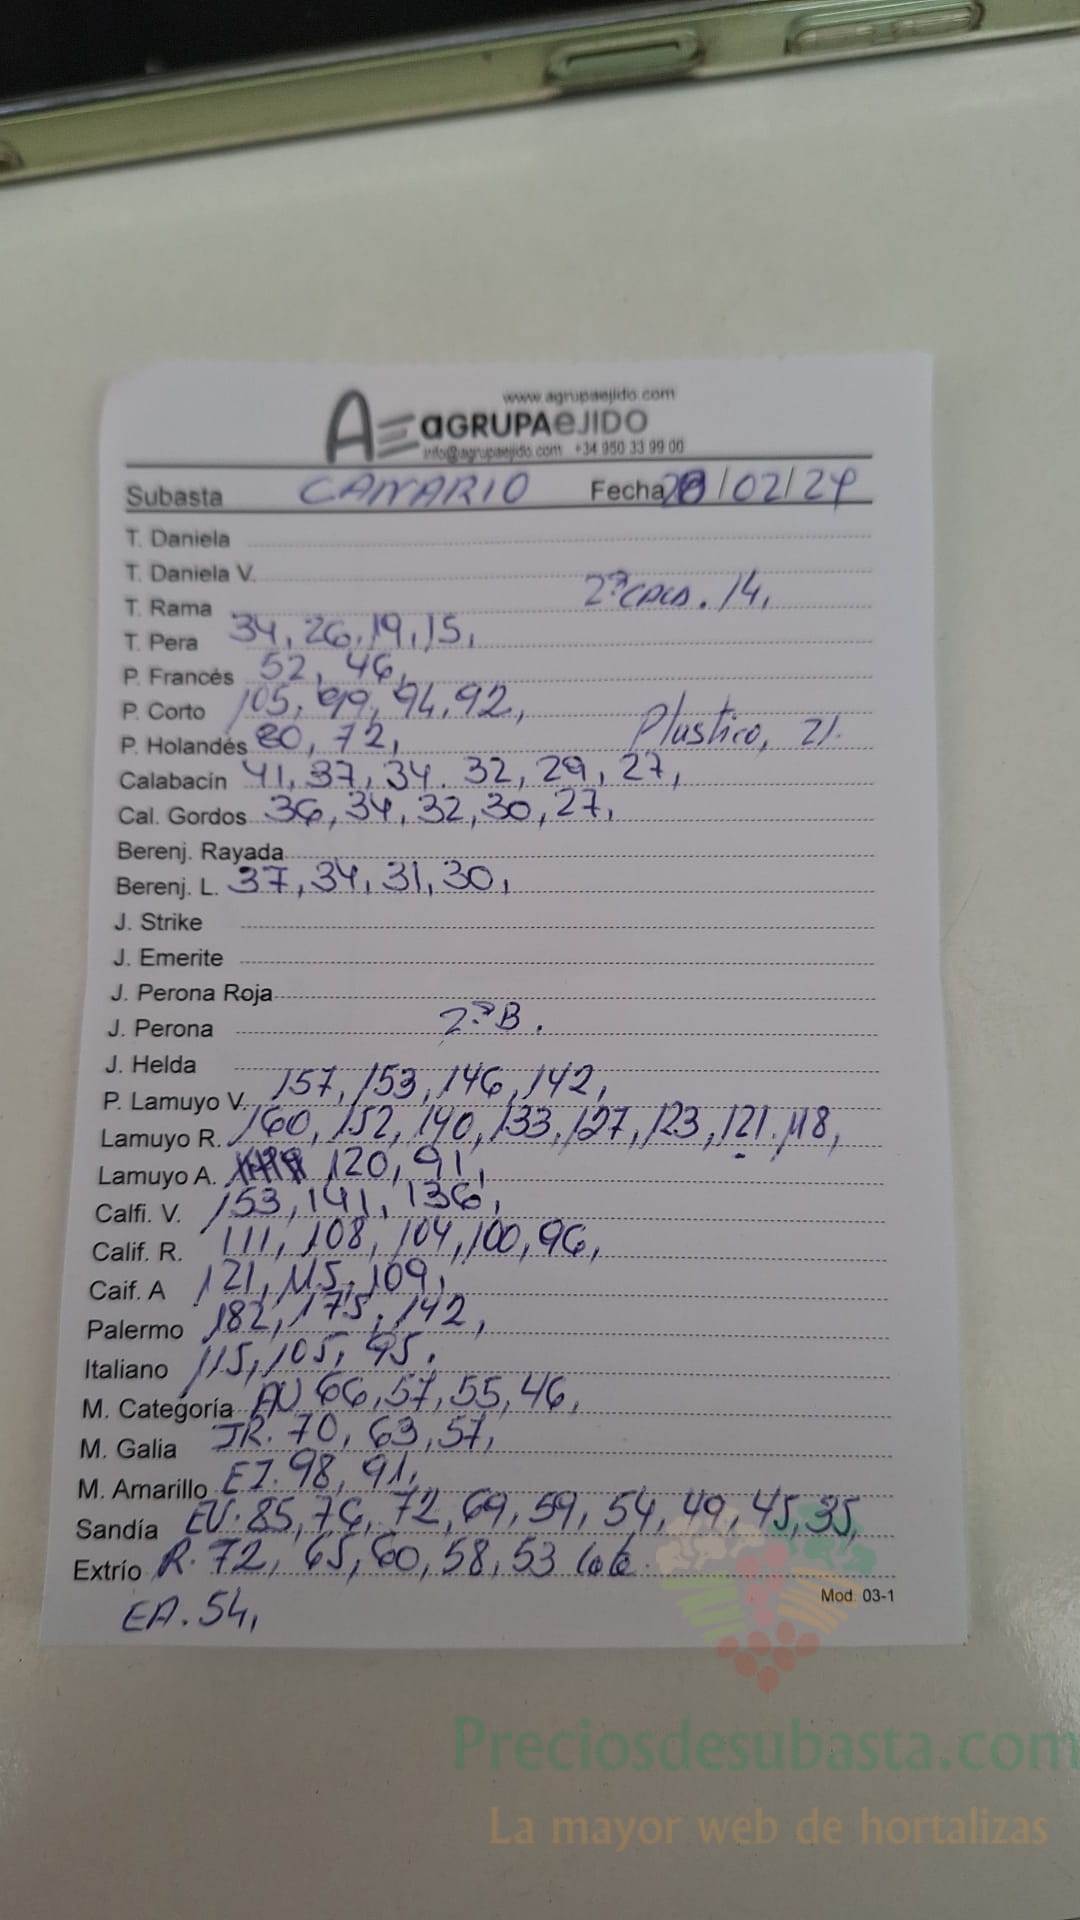 www.agrupaejido.com
AE aGRUPAeJIDO
info@agrupaejido.com +34 950 33 99 00
Subasta CANARIO Fecha 28/02/24
T. Daniela
T. Daniela V.
T. Rama 2ª CALA. 14,
T. Pera 34, 26, 19, 15,
P. Francés 52, 46,
P. Corto 105, 99, 94, 92,
P. Holandés 80, 72, Plastico, 21.
Calabacín 41, 37, 34. 32, 29, 27,
Cal. Gordos 36, 34, 32, 30, 27,
Berenj. Rayada
Berenj. L. 37, 34, 31, 30,
J. Strike
J. Emerite
J. Perona Roja
J. Perona 2ª B.
J. Helda
P. Lamuyo V. 157, 153, 146, 142,
Lamuyo R. 160, 152, 140, 133, 127, 123, 121, 118,
Lamuyo A. 120, 91,
Calfi. V. 153, 141, 136,
Calif. R. 111, 108, 104, 100, 96,
Caif. A 121, 115, 109,
Palermo 182, 175, 142,
Italiano 115, 105, 95.
M. Categoría AU 66, 57, 55, 46,
M. Galia JR. 70, 63, 57,
M. Amarillo EJ. 98, 91,
Sandía EU. 85, 76, 72, 69, 59, 54, 49, 45, 35,
Extrío R. 72, 65, 60, 58, 53
Mod. 03-1
EA. 54,
Preciosdesubasta.com
La mayor web de hortalizas